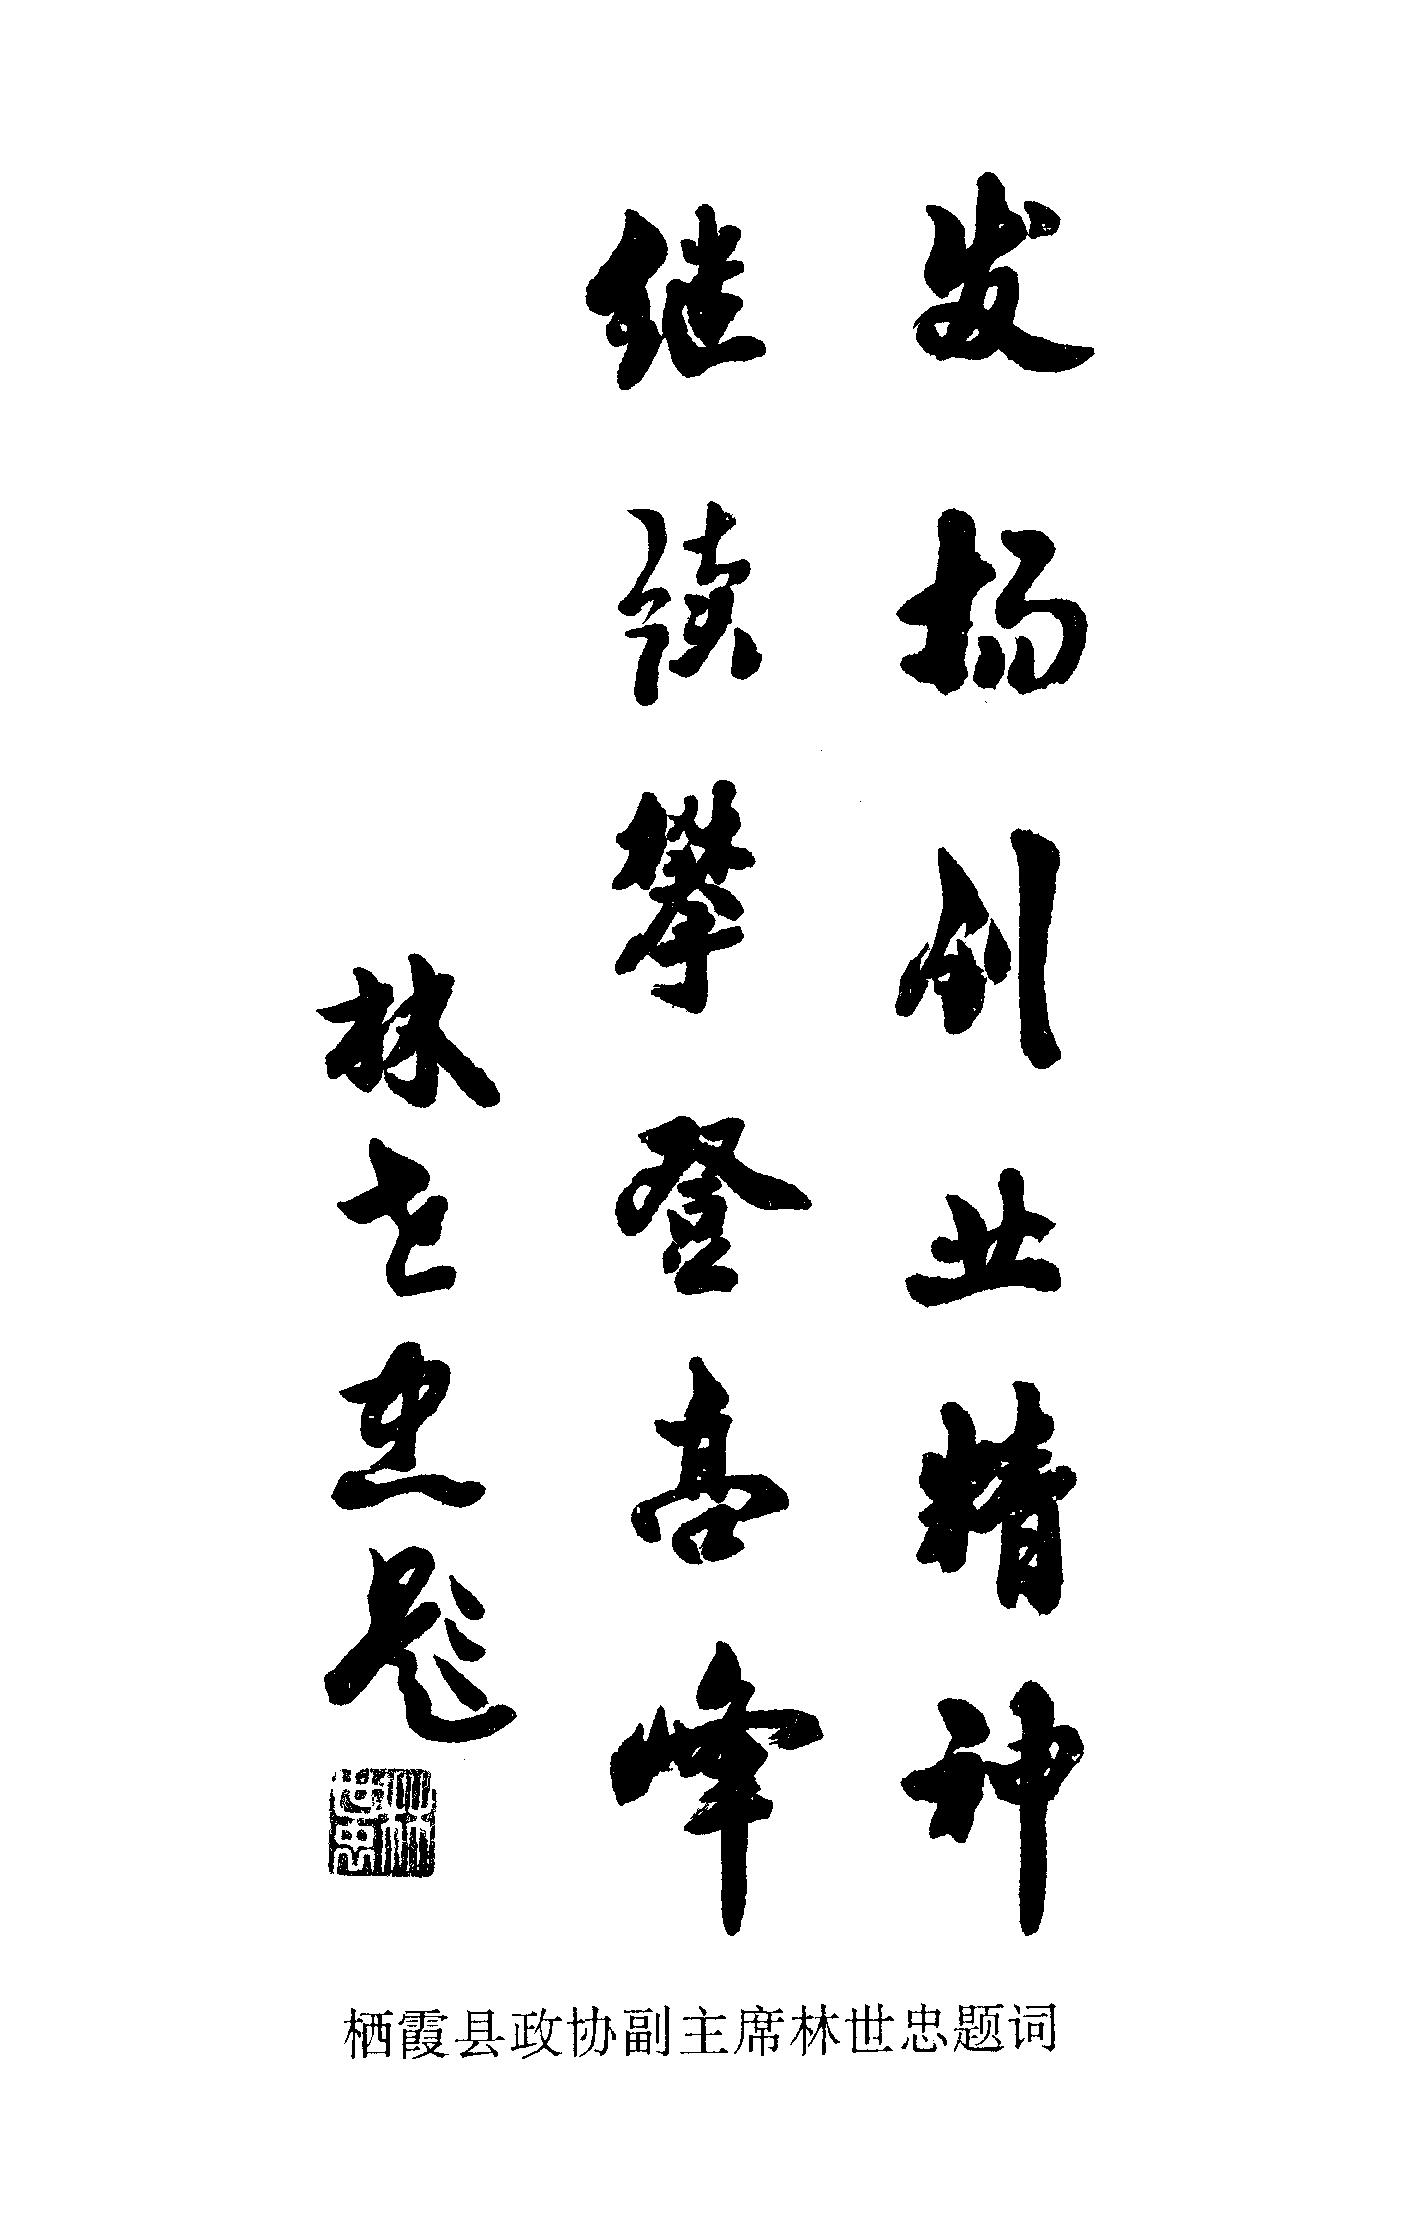 发扬创业精神
继续攀登高峰
林世忠题
林世忠
栖霞县政协副主席林世忠题词